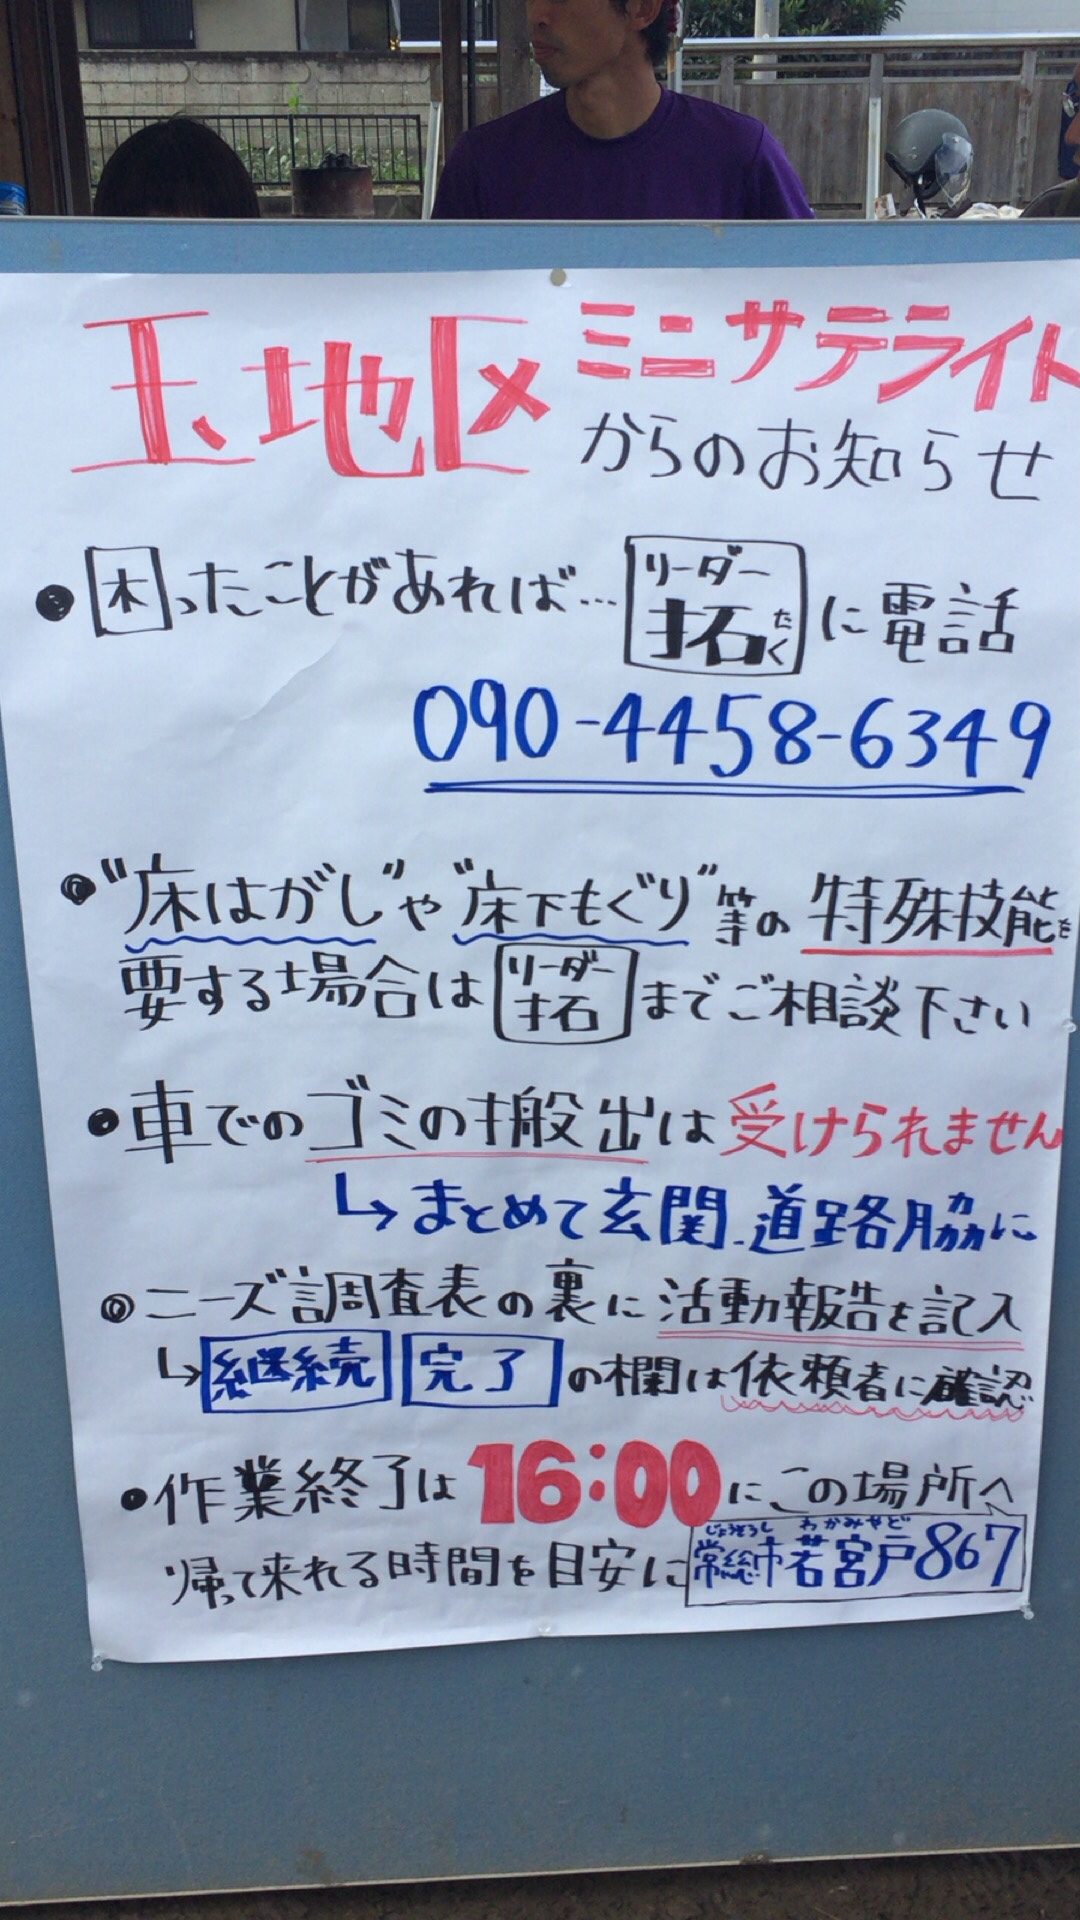 玉地区 ミニサテライト
からのお知らせ
● 困ったことがあれば… リーダー 拓 たく に電話
090-4458-6349
● "床はがし"や"床下もぐり"等の特殊技能を
要する場合は リーダー 拓 までご相談下さい
● 車でのゴミの搬出は受けられません
↳ まとめて玄関、道路脇に
◎ ニーズ調査表の裏に活動報告を記入
↳ 継続 完了 の欄は依頼者に確認
● 作業終了は 16:00 にこの場所へ
帰って来れる時間を目安に
じょうそうし わかみやど
常総市若宮戸867